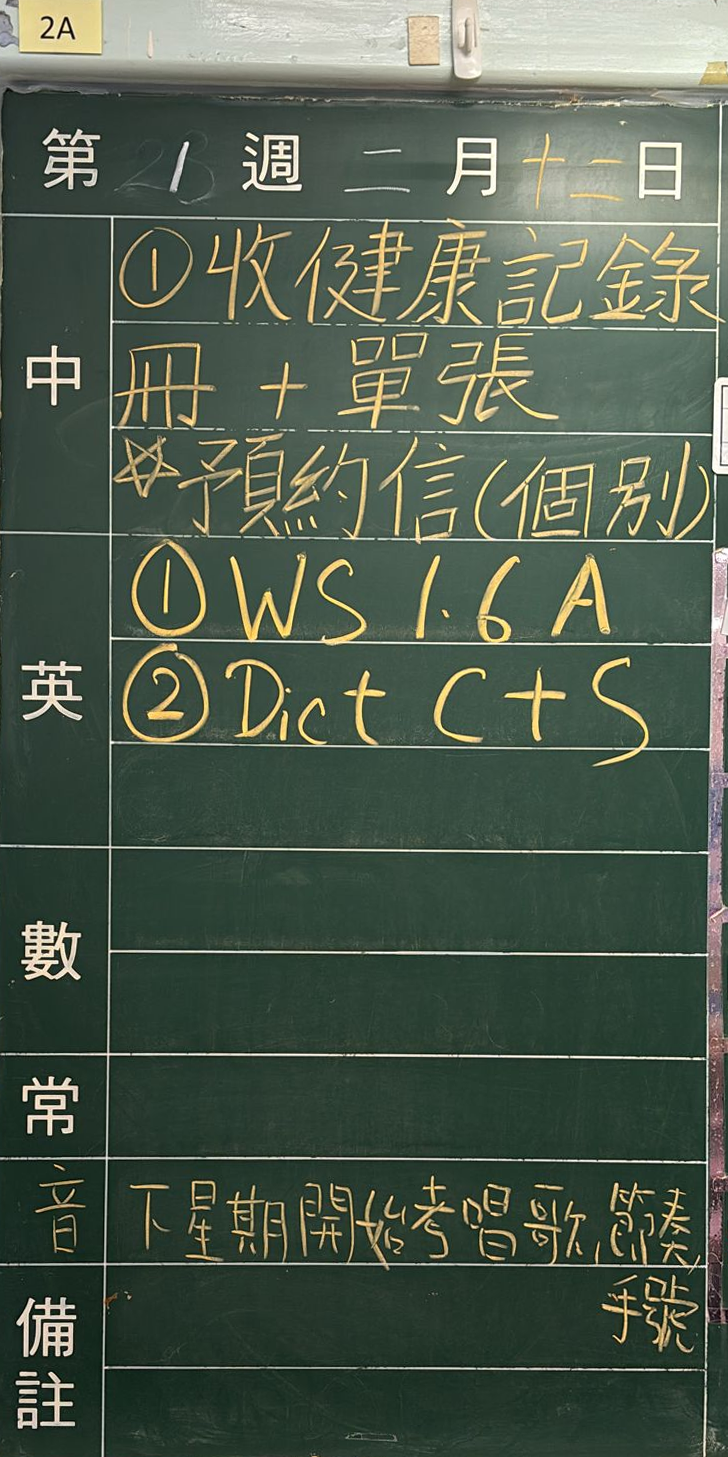 2A
第 1 週 二 月 十二 日
中
①收健康記錄
冊 + 單張
☆預約信(個別)
英
① WS 1.6 A
② Dict C+S
數
常
音 下星期開始考唱歌,節奏,
手號
備註